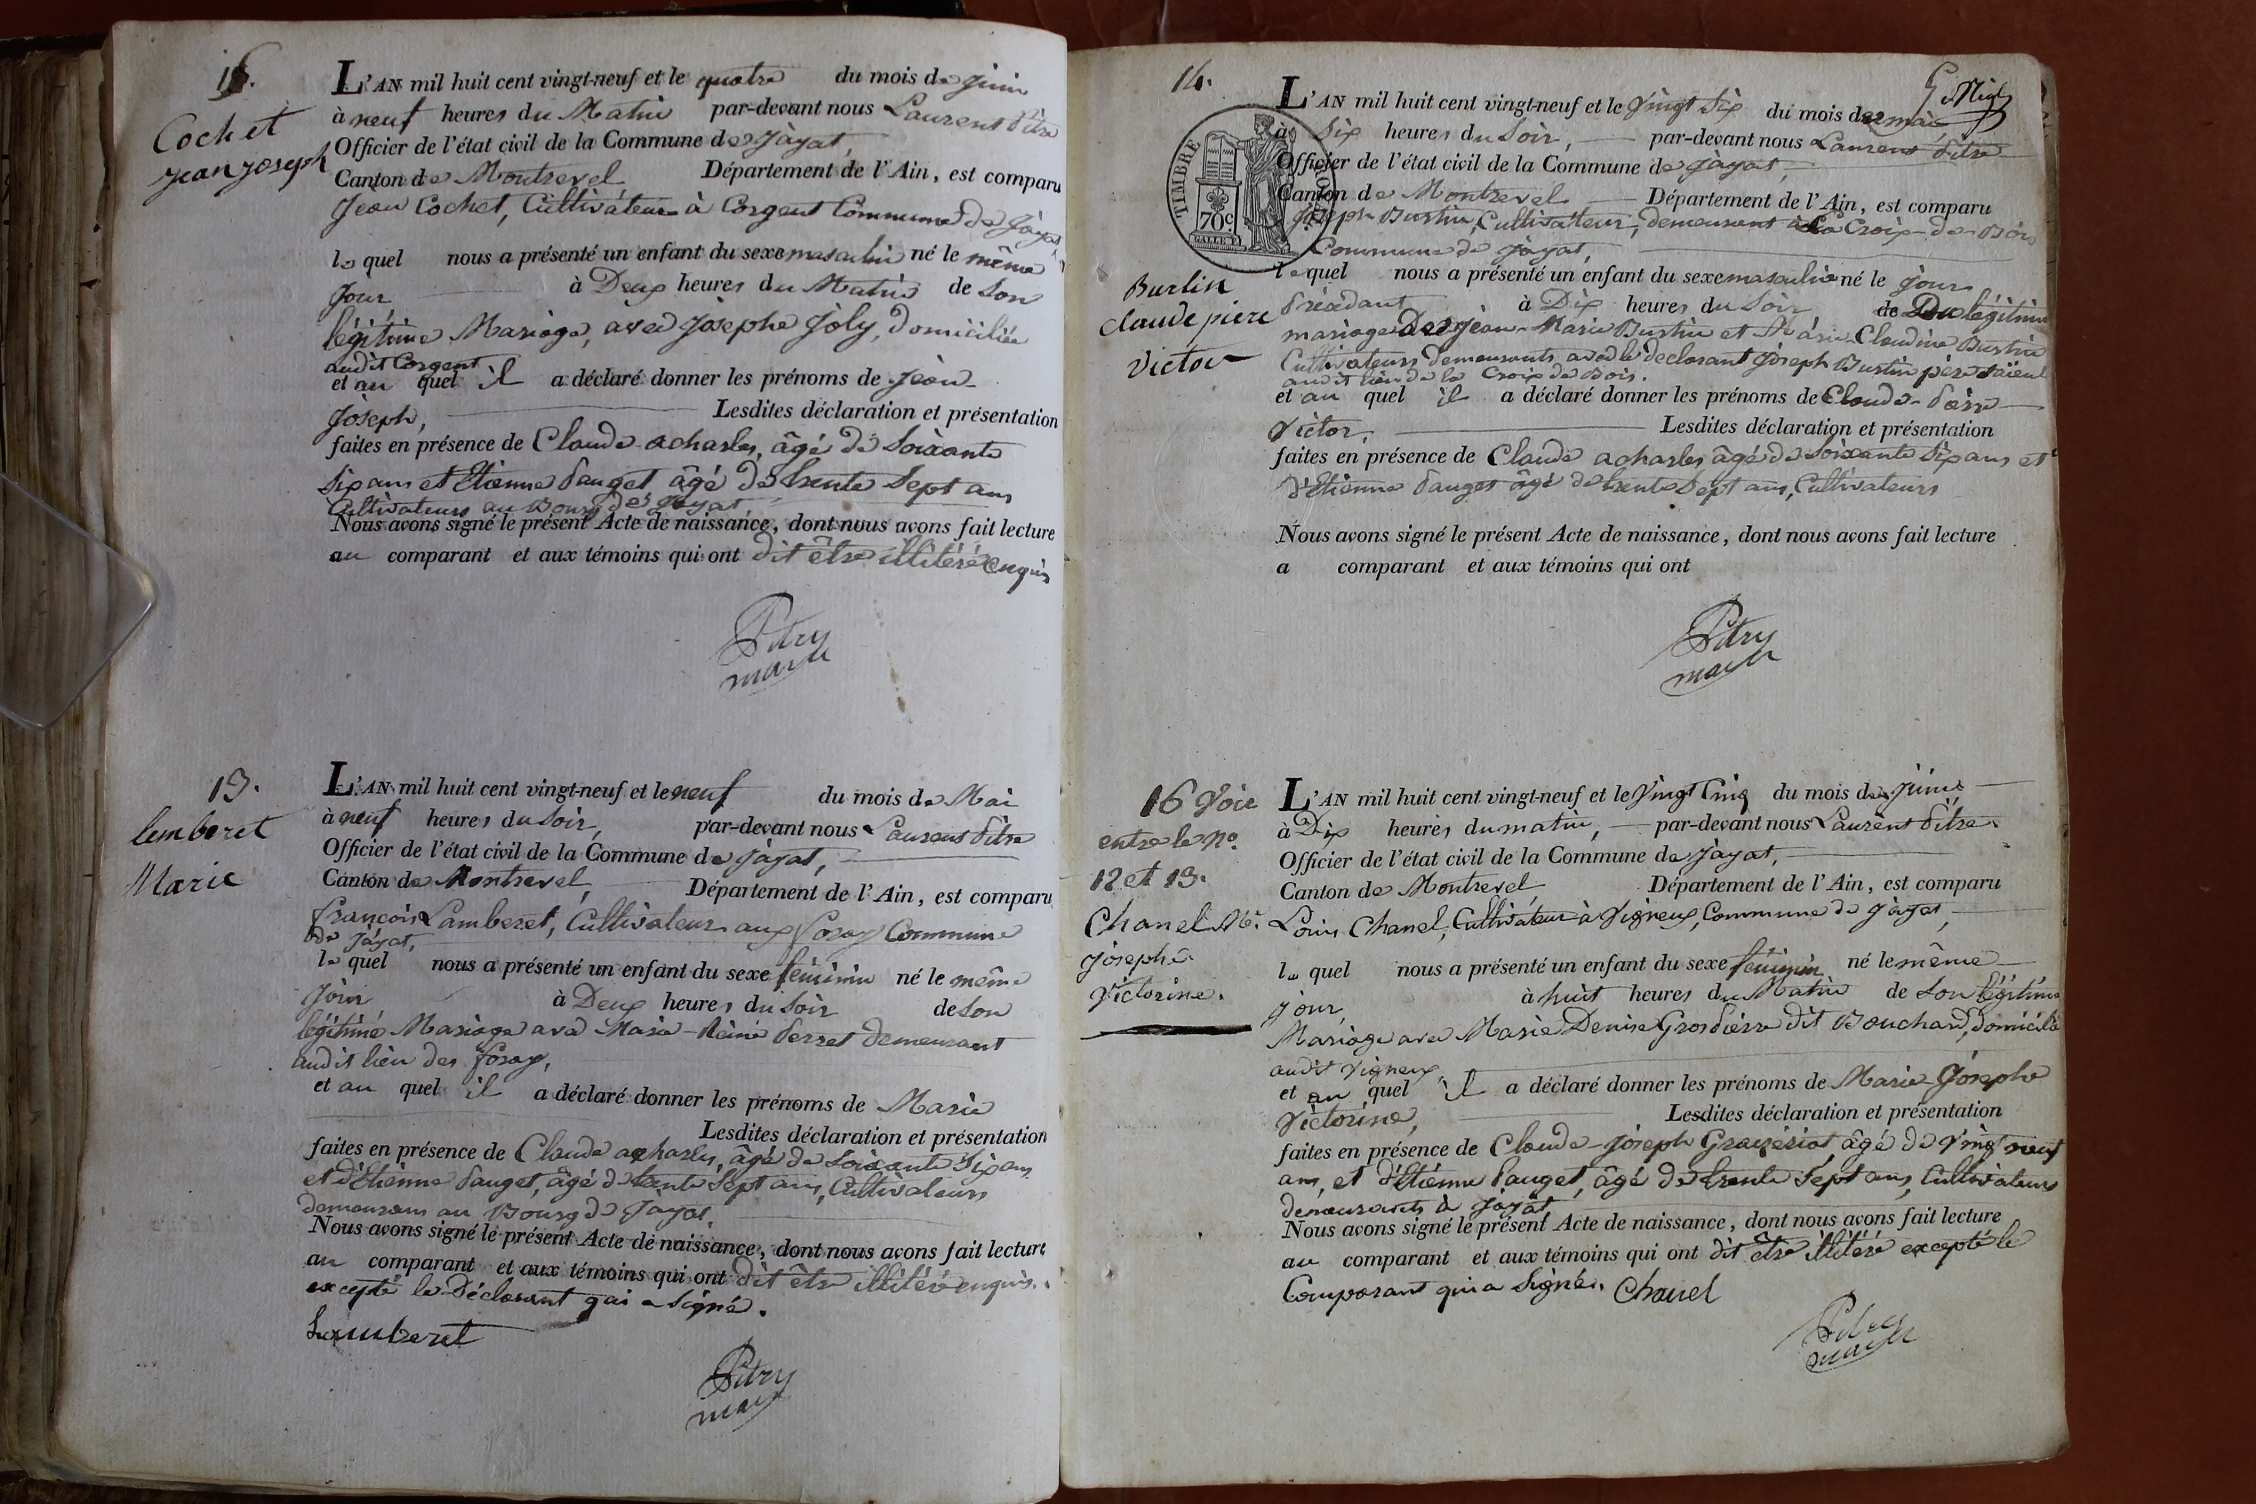 15.
Cochet
jean joseph
L'AN mil huit cent vingt-neuf et le quatre du mois de juin
à neuf heures du Matin par-devant nous Laurent Pitre
Officier de l'état civil de la Commune de Jayat,
Canton de Montrevel Département de l'Ain, est comparu
Jean Cochet, Cultivateur à Corgent Commune de Jayat,
le quel nous a présenté un enfant du sexe masculin né le même
jour à Deux heures du Matin de son
légitime Mariage, avec Josephe Joly, domiciliée
audit Corgent
et au quel il a déclaré donner les prénoms de Jean-
Joseph, Lesdites déclaration et présentation
faites en présence de Claude acharles, âgé de Soixante
Six ans et Etienne Pauget âgé de trente Sept ans
Cultivateurs au Bourg de Jayat
Nous avons signé le présent Acte de naissance, dont nous avons fait lecture
au comparant et aux témoins qui ont dit être illitéré enquis
Pitre
maire
13.
lemberet
Marie
L'AN mil huit cent vingt-neuf et le neuf du mois de Mai
à neuf heures du Soir, par-devant nous Laurent Pitre
Officier de l'état civil de la Commune de Jayat,
Canton de Montrevel, Département de l'Ain, est comparu
françois Lamberet, Cultivateur aux Commune
de Jayat,
le quel nous a présenté un enfant du sexe féminin né le même
Jour à Deux heures du Soir de son
légitimé Mariage avec Marie-Reine Perret demeurant
audit lieu des
et au quel il a déclaré donner les prénoms de Marie
Lesdites déclaration et présentation
faites en présence de Claude acharles, âgé de Soixante Six ans
et d'Etienne Pauget, âgé de trente Sept ans, Cultivateurs
demeurans au Bourg de Jayat.
Nous avons signé le présent Acte de naissance, dont nous avons fait lecture
au comparant et aux témoins qui ont dit être illitéré enquis.
excepté le Déclarant qui a Signé.
Lamberet
Pitre
maire
14.
TIMBRE ROYAL
70c
L'AN mil huit cent vingt-neuf et le Vingt Six du mois de mai
à Six heures du Soir, par-devant nous Laurent Pitre
Officier de l'état civil de la Commune de Jayat,
Canton de Montrevel Département de l'Ain, est comparu
Joseph Burtin, Cultivateur, demeurant à La Croix-de-Bois
Commune de Jayat,
le quel nous a présenté un enfant du sexe masculin né le jour
Burlin
Claude piere
Victor
précédant à Dix heures du Soir de Du légitime
mariage De Jean-Marie Burtin et Marie Claudine Burtin
Cultivateurs demeurants avec le declarant Joseph Burtin père
audit lieu de la Croix de Bois.
et au quel il a déclaré donner les prénoms de Claude-Pierre
Victor, Lesdites déclaration et présentation
faites en présence de Claude acharles âgé de Soixante Six ans et
d'Etienne Pauget âgé de trente Sept ans, Cultivateurs
Nous avons signé le présent Acte de naissance, dont nous avons fait lecture
a comparant et aux témoins qui ont
Pitre
maire
16 Voir
entre le No.
12 et 13.
Chanel Me.
Josephe
Victorine.
L'AN mil huit cent vingt-neuf et le Vingt Cinq du mois de juin
à Dix heures du matin, par-devant nous Laurent Pitre
Officier de l'état civil de la Commune de Jayat,
Canton de Montrevel Département de l'Ain, est comparu
Louis Chanel, Cultivateur à Vigneux, Commune de Jayat,
le quel nous a présenté un enfant du sexe féminin né le même
jour, à huit heures du Matin de son légitime
Mariage avec Marie Denise Grospierre dit Bouchard, domicilié
audit Vigneux,
et au quel il a déclaré donner les prénoms de Marie-Josephe
Victorine, Lesdites déclaration et présentation
faites en présence de Claude-Joseph âgé de Vingt neuf
ans, et d'Etienne Pauget, âgé de trente Sept ans, Cultivateurs
demeurants à Jayat
Nous avons signé le présent Acte de naissance, dont nous avons fait lecture
au comparant et aux témoins qui ont dit être illitéré excepté le
Comparant qui a Signé. Chanel
Pitre
maire